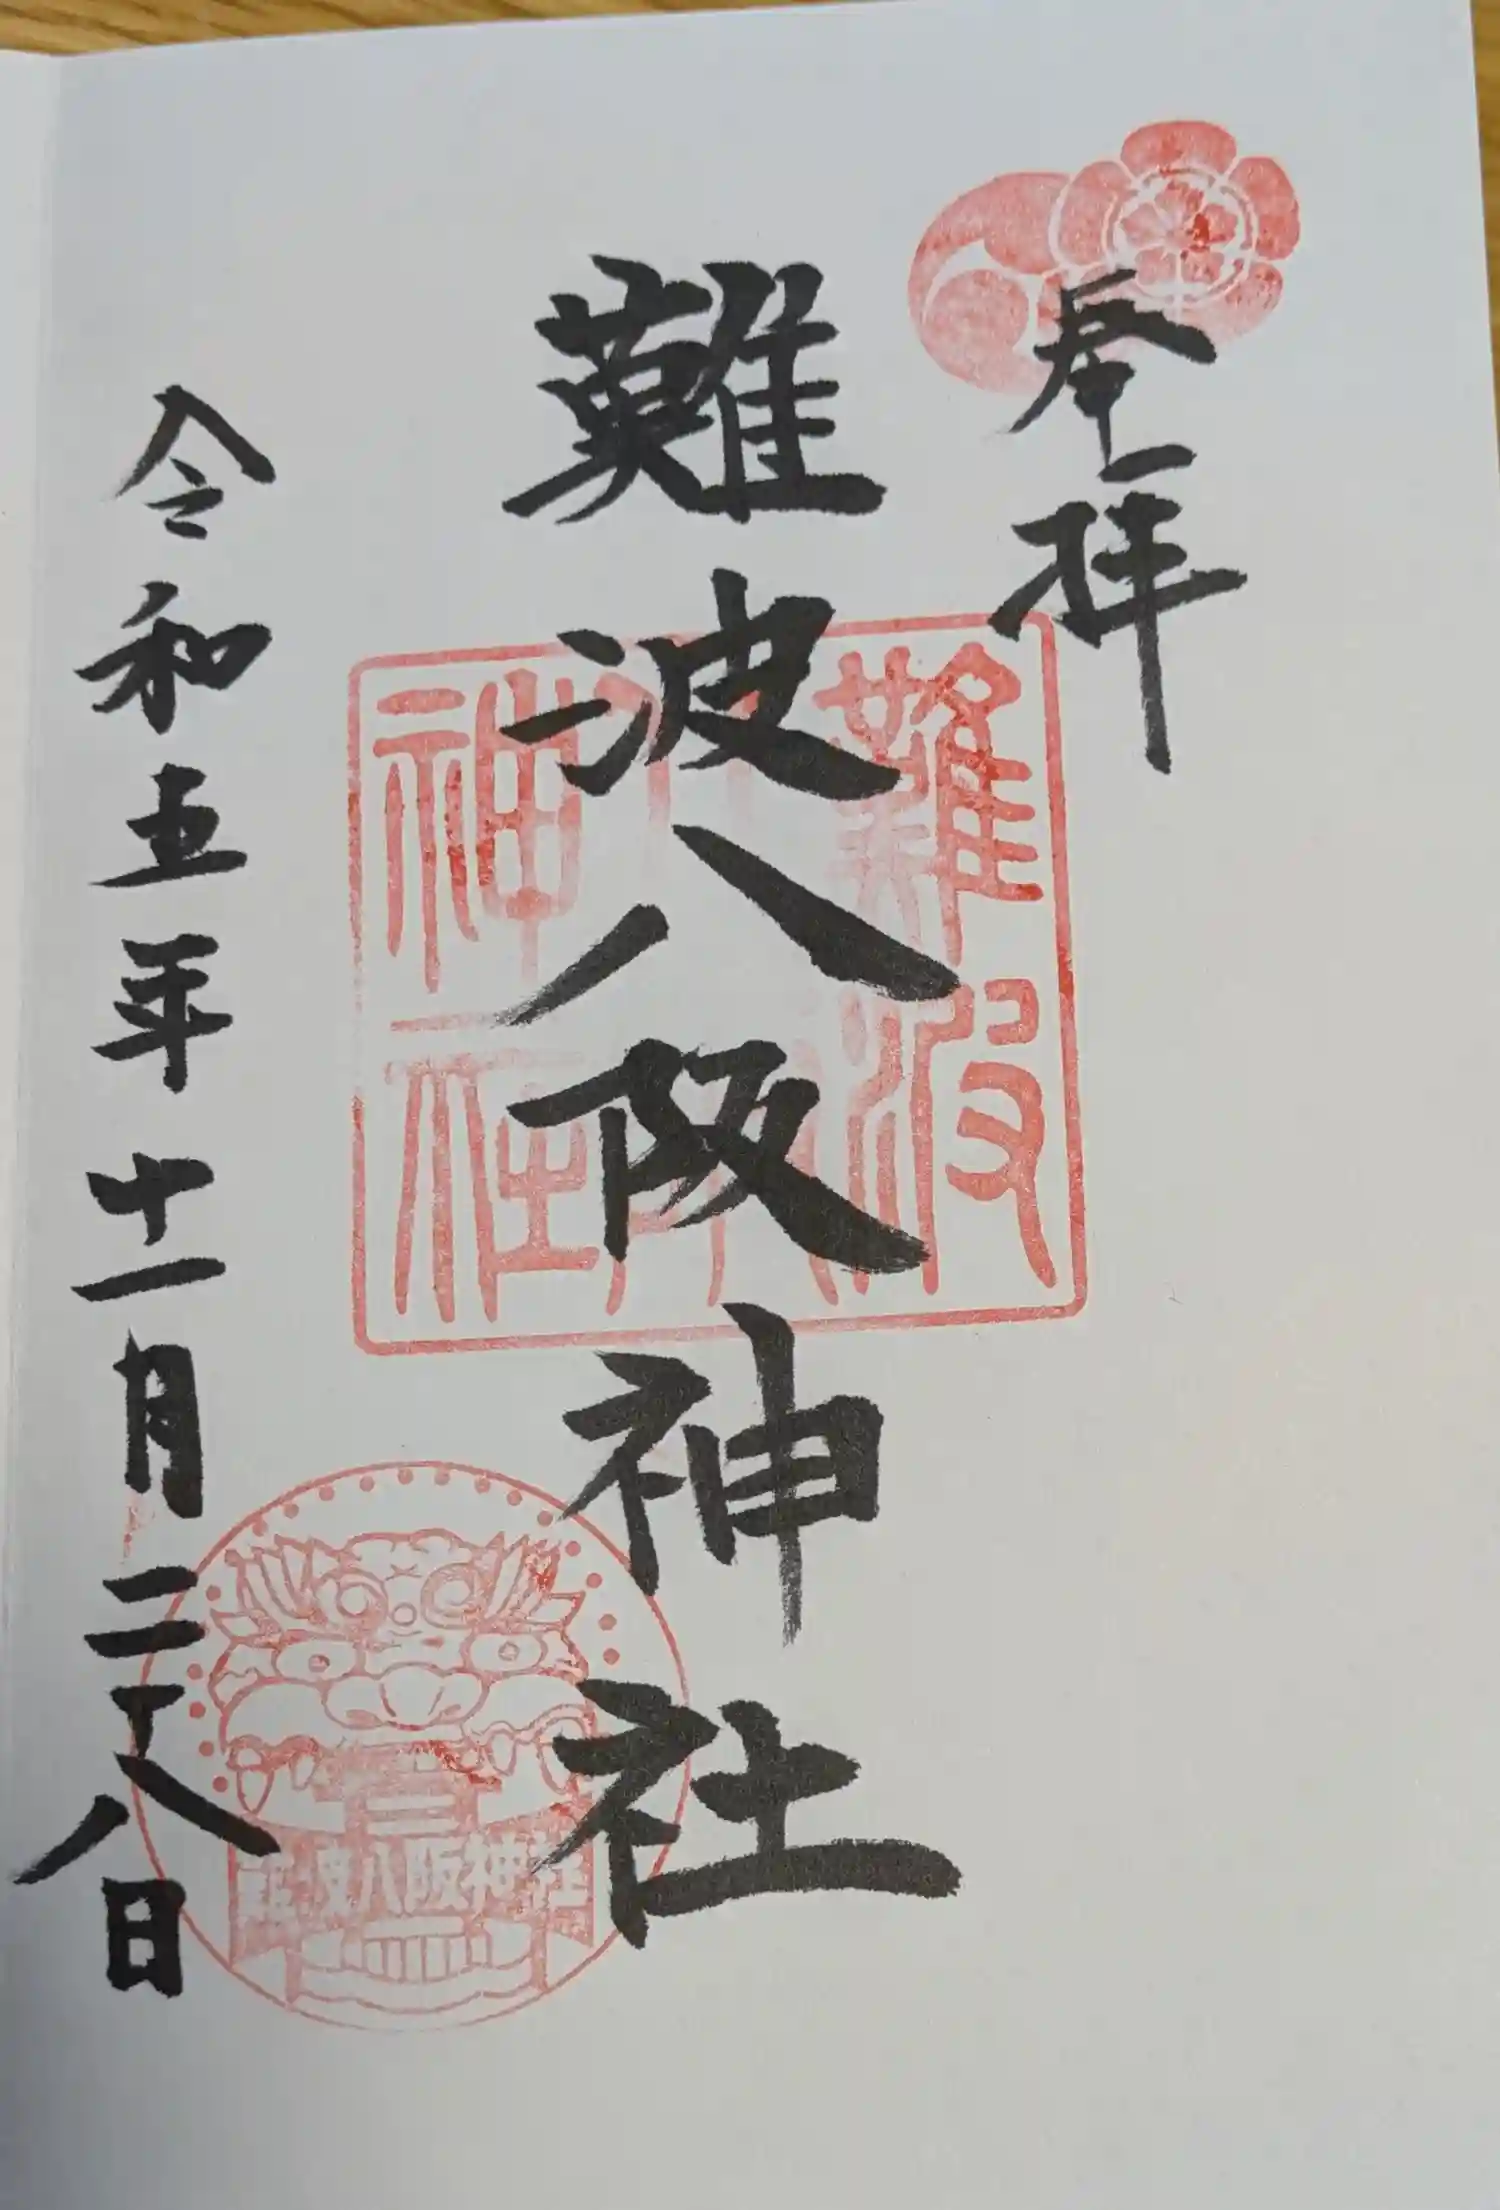 奉拝
難波八阪神社
令和五年十一月二十八日
難波
神社
難波八阪神社